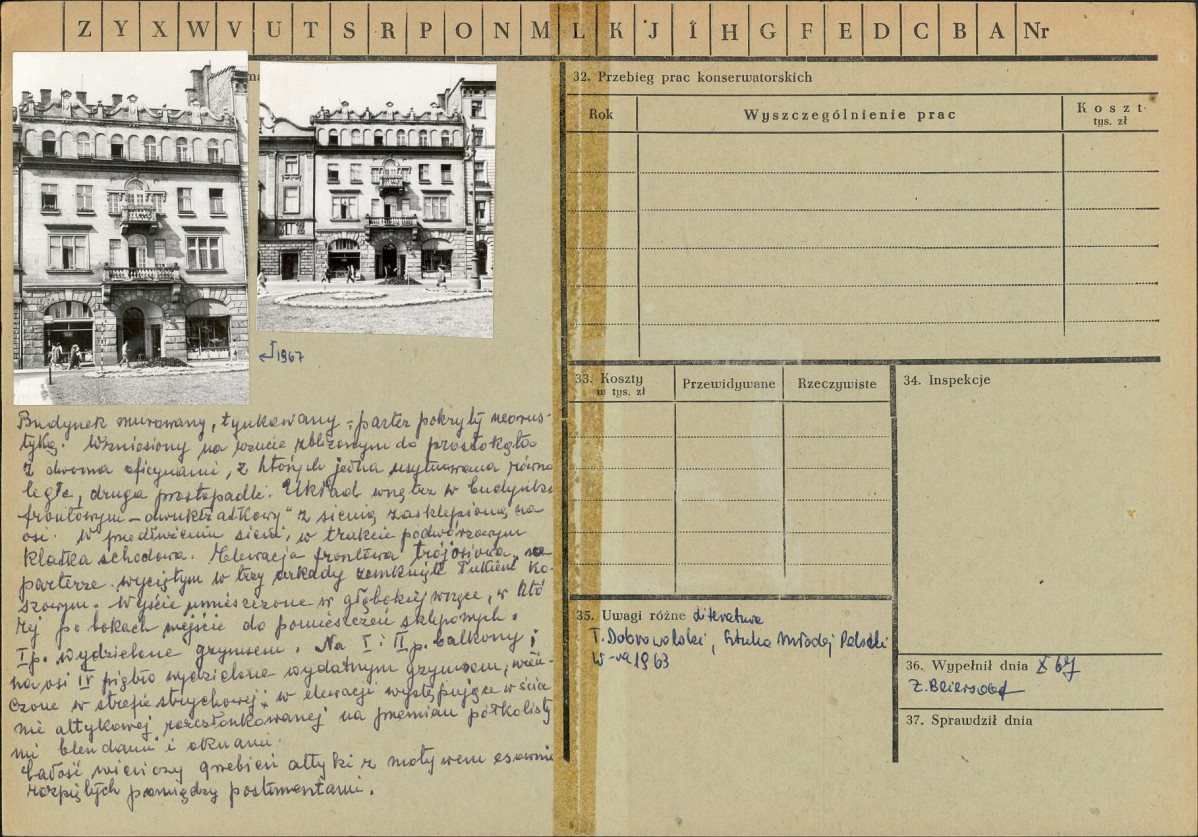 Z Y X W V U T S R P O N M L K J Í H G F E D C B A Nr
1967
Budynek murowany, tynkowany, parter pokryty neorus-
tyką. Wzniesiony na rzucie zbliżonym do prostokąta
z dwoma oficynami, z których jedna usytuowana równo
legle, druga prostopadle. Układ wnętrz w budynku
frontowym - dwutraktowy" z sienią zasklepioną na
osi. W przedłużeniu sieni, w trakcie podwórzowym
klatka schodowa. Elewacja frontowa trójosiowa, na
parterze wyciętym w trzy arkady zamknięte łukiem ko-
szowym. Wejście umieszczone w głębokiej wnęce, w któ
rej po bokach wejście do pomieszczeń sklepowych.
I p. wydzielone gzymsem. Na I i II p. balkony
na osi IV piętro wydzielone wydatnym gzymsem, wień-
czone w strefie strychowej w elewacji występujące w ścia
nie attykowej rozczłonkowanej na przemian półkolisty
mi blendami i oknami.
Całość wieńczy grzebień attyki z motywem esownic
rozpiętych pomiędzy postumentami.
32. Przebieg prac konserwatorskich
Rok Wyszczególnienie prac Koszt
tys. zł
33. Koszty Przewidywane Rzeczywiste
w tys. zł
34. Inspekcje
35. Uwagi różne literatura
T. Dobrowolski, Sztuka Młodej Polski
W-wa 1963
36. Wypełnił dnia X 67
Z. Beiersdorf
37. Sprawdził dnia